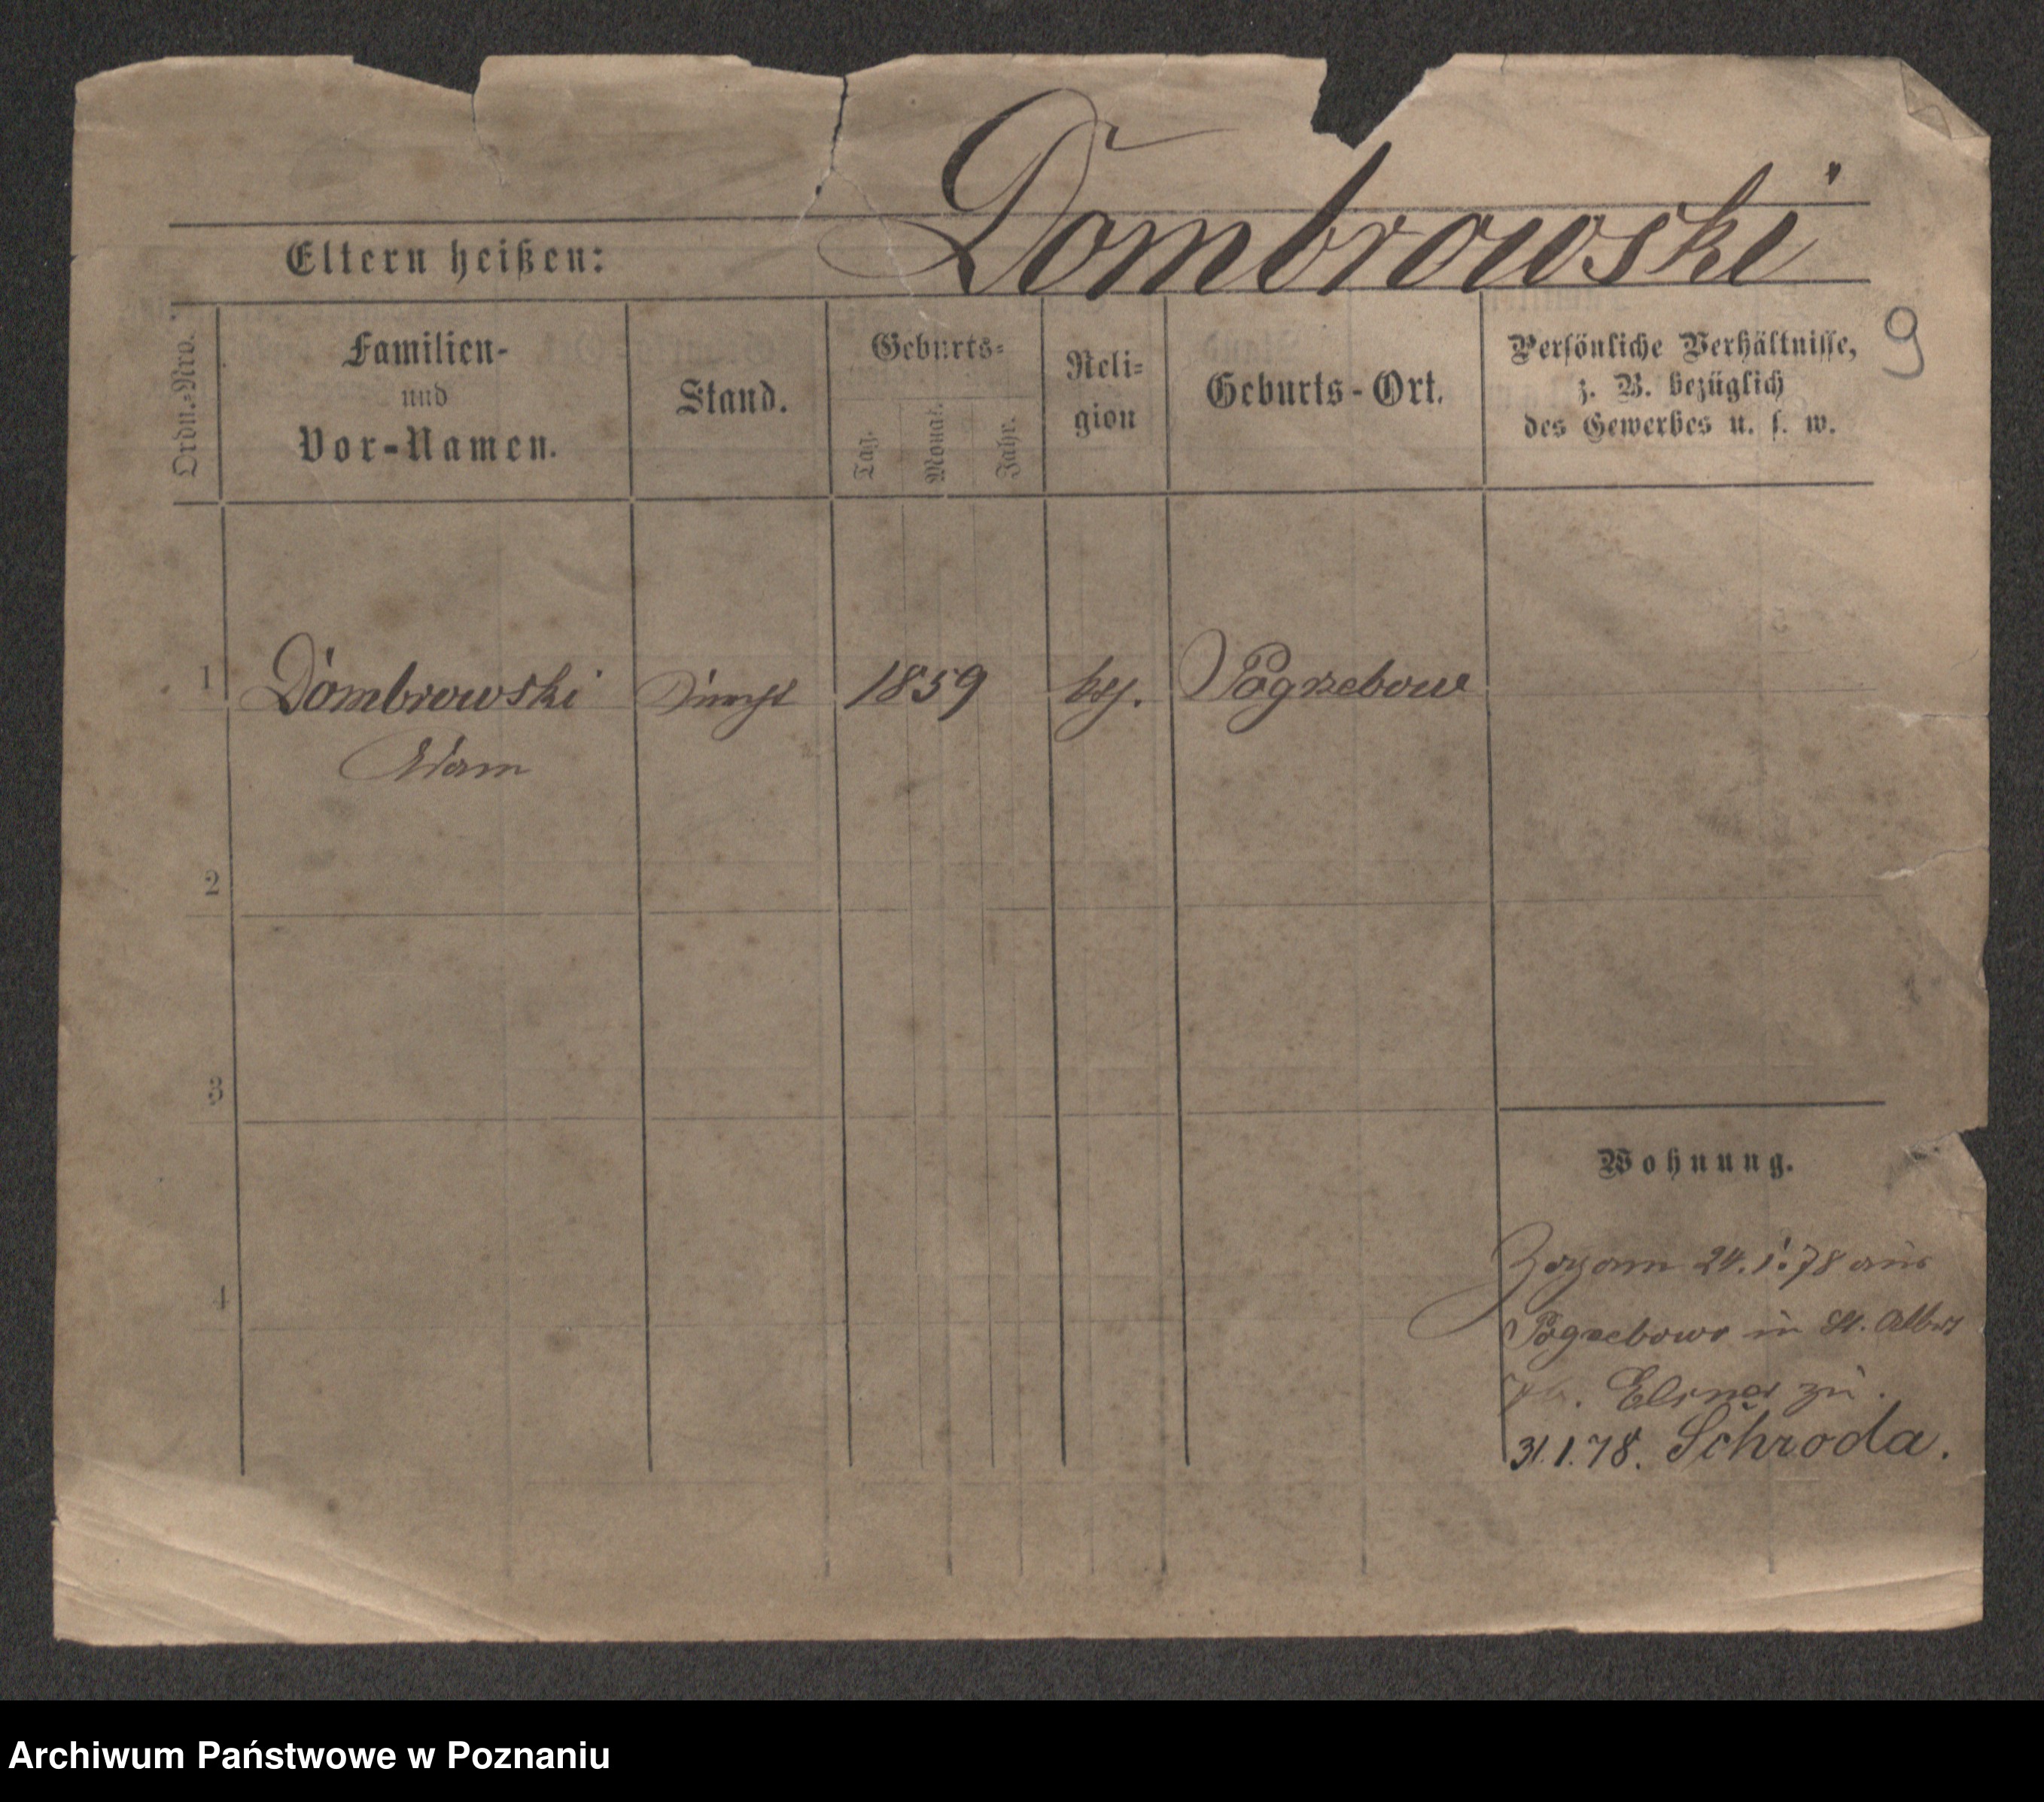 Dombrowski
Eltern heißen:
9
Ordn.-Nro.
Familien-
und
Vor-Namen.
Stand.
Geburts-
Tag.
Monat.
Jahr.
Reli-
gion
Geburts-Ort.
Persönliche Verhältnisse,
z. B. bezüglich
des Gewerbes u. s. w.
1 Dombrowski 1859 Pogrzebow
Adam
2
3
Wohnung.
4
Zog am 24.1.78 aus
Pogrzebowo in St.
Elsner zu
31.1.78. Schroda.
Archiwum Państwowe w Poznaniu